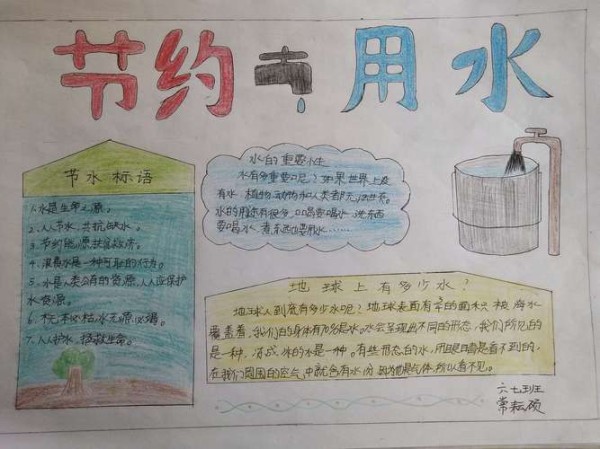 节约用水
节水标语
1.水是生命之源。
2.人人节水,共抗缺水。
3.节约能源
4.浪费水是一种可耻的行为。
5.水是人类公有的资源,人人应保护
水资源。
6.枯水无源必竭。
7.人人护水,拯救生命。
水的重要性
水有多重要呢?如果世界上没
有水,植物,动物和人类都无法生长。
水的用途有很多,口喝要喝水,洗东西
要喝水,煮东西也要用水……
地球上有多少水?
地球到底有多少水呢?地球表面有的面积被海水
覆盖着,我们的身体有是水。水会呈现出不同的形态,我们所见的
是一种,冰的水是一种。有些形态的水,用眼睛是看不到的,
在我们周围的空气中就含有水份,因为它是气体,所以看不见。
六七班
常耘硕